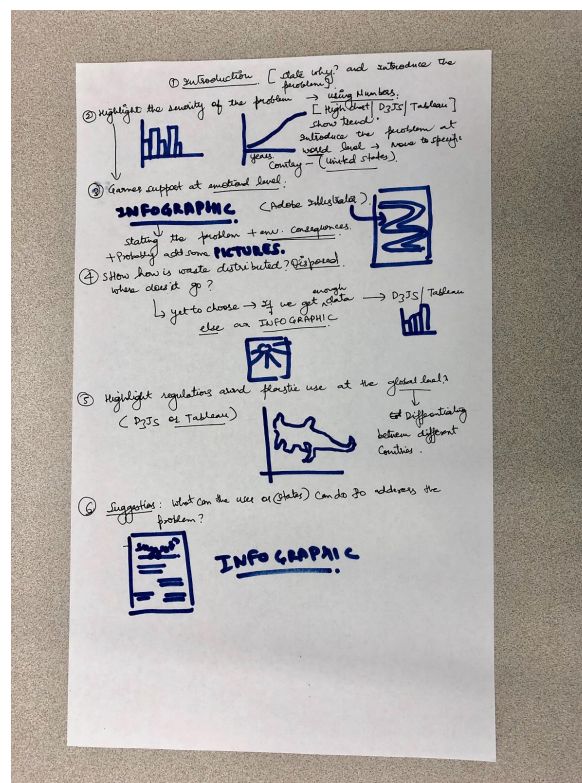 ① Introduction. [ state why? and introduce the
problem].
② Highlight the severity of the problem → using Numbers.
[ High chart / D3JS / Tableau ]
show trend.
Introduce the problem at
world level → Move to specific
Country - (United States).
years
③ Garner support at emotional level.
INFOGRAPHIC (Adobe Illustrator).
stating the problem + env. consequences.
+ Probably add some PICTURES.
④ Show how is waste distributed? Disposed.
where does it go?
↳ yet to choose → If we get enough data → D3JS / Tableau
else an INFOGRAPHIC
⑤ Highlight regulations around plastic use at the global level?
(D3JS or Tableau)
Differentiating
between different
Countries.
⑥ Suggestion: What can the user or (states) can do to address the
problem?
INFOGRAPHIC